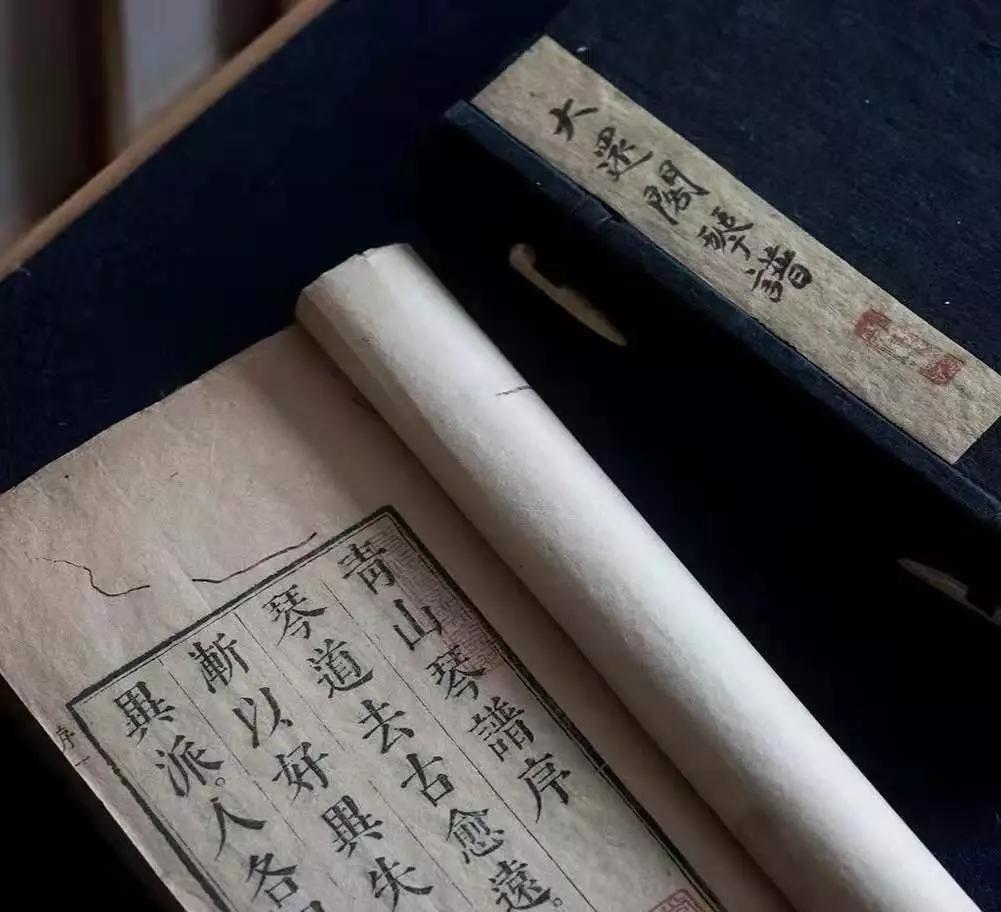 大還閣琴譜
青山琴譜序
琴道去古愈遠。
漸以好異失
異派。人各
序一